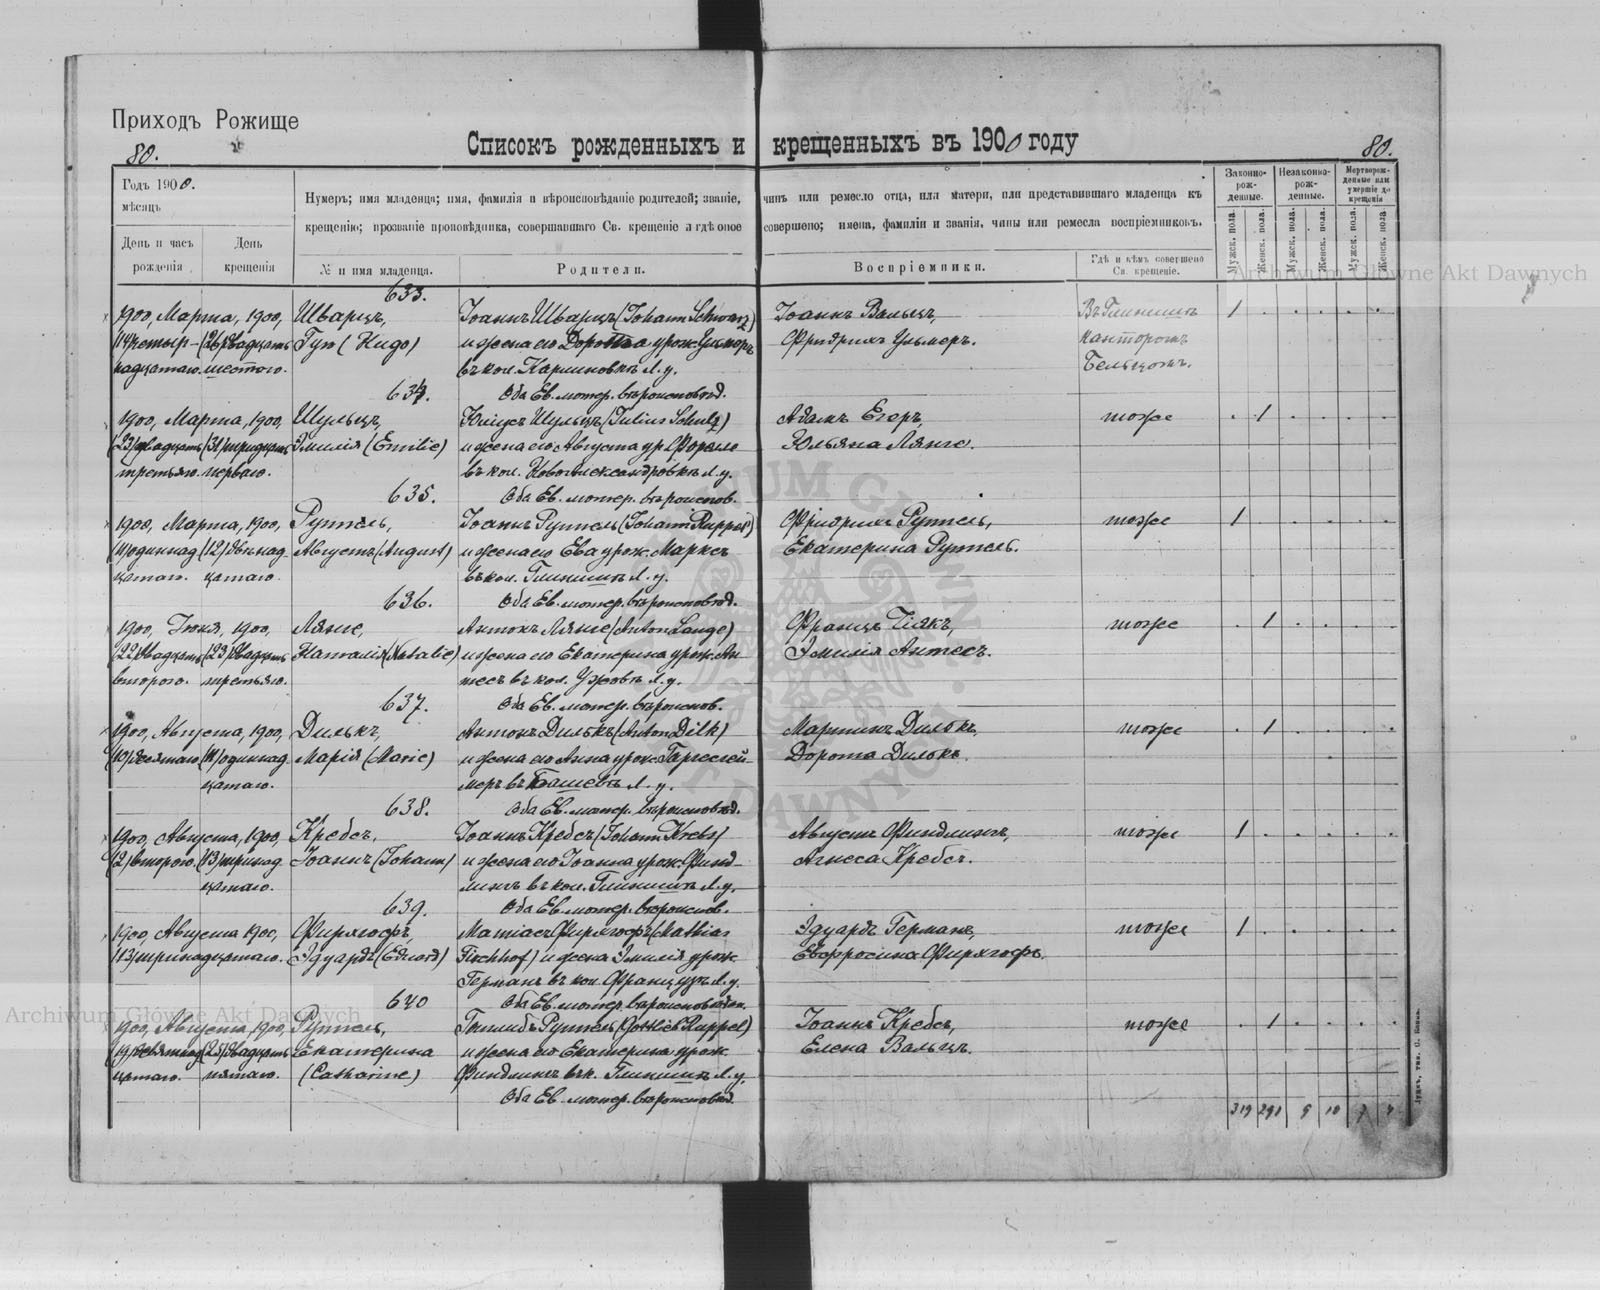 Приходъ Рожище
80.
Списокъ рожденныхъ и крещенныхъ въ 1900 году
80.
Годъ 1900.
мѣсяцъ
День и часъ рожденія
День крещенія
Нумеръ; имя младенца; имя, фамилія и вѣроисповѣданіе родителей; званіе, чинъ или ремесло отца, или матери, или представившаго младенца къ
крещенію; прозваніе проповѣдника, совершавшаго Св. крещеніе и гдѣ оное совершено; имена, фамиліи и званія, чины или ремесла воспріемниковъ.
№ и имя младенца.
Родители.
Воспріемники.
Гдѣ и кѣмъ совершено Св. крещеніе.
Законно-рож-денные.
Незаконно-рож-денные.
Мертворож-денные или умершіе до крещенія
Мужск. пола.
Женск. пола.
Мужск. пола.
Женск. пола.
Мужск. пола.
Женск. пола.
633.
1900, Марта, 1900, Шварцъ, Іоаннъ Шварцъ (Johann Schwarz) Іоаннъ Вальцъ, Въ Глинищахъ 1
(14) четыр- (26) двадцать Гуго (Hugo) и жена его Доротеа урож. Ульмеръ Фридрихъ Ульмеръ. канторомъ
надцатаго. шестого. въ кол. Калиновкѣ Л. у. Бельцомъ.
634. Оба Ев. лютер. вѣроисповѣд.
1900, Марта, 1900, Шульцъ, Юліусъ Шульцъ (Julius Schulz) Адамъ Егеръ, тоже 1
(23) двадцать (31) тридцать Эмилія (Emilie) и жена его Августа ур. Юльяна Лянге.
третьяго. перваго. въ кол. Новоалександровкѣ Л. у.
635. Оба Ев. лютер. вѣроисповѣд.
1900, Марта, 1900, Руппель, Іоаннъ Руппель (Johann Ruppel) Фридрихъ Руппель, тоже 1
(11) одиннад (12) двѣнад Августъ (August) и жена его Ева урож. Марксъ Екатерина Руппель.
цатаго. цатаго. въ кол. Глинищахъ Л. у.
636. Оба Ев. лютер. вѣроисповѣд.
1900, Іюня, 1900, Лянге, Антонъ Лянге (Anton Lange) Францъ тоже 1
(22) двадцать (23) двадцать Наталія (Natalie) и жена его Екатерина урож. Ан- Эмилія Антесъ.
второго. третьяго. тесъ въ кол. Ужовѣ Л. у.
637. Оба Ев. лютер. вѣроисповѣд.
1900, Августа, 1900, Дилькъ, Антонъ Дилькъ (Anton Dilk) Мартинъ Дилькъ, тоже 1
(10) десятаго (11) одиннад Марія (Marie) и жена его Анна урож. Доротa Дилькъ.
цатаго. меръ въ Башевѣ Л. у.
638. Оба Ев. лютер. вѣроисповѣд.
1900, Августа, 1900, Кребсъ, Іоаннъ Кребсъ (Johann Krebs) Августъ Финдлингъ, тоже 1
(2) второго. (13) тринад Іоаннъ (Johann) и жена его Іоанна урож. Финд- Агнеса Кребсъ.
цатаго. лингъ въ кол. Глинищахъ Л. у.
639. Оба Ев. лютер. вѣроиспов.
1900, Августа 1900, Фишгофъ, Матіасъ Фишгофъ (Mathias Эдуардъ Германъ, тоже 1
(13) тринадцатаго. Эдуардъ (Eduard) Fischhof) и жена Эмилія урож. Евфросина Фишгофъ.
Германъ въ кол. Л. у.
640 Оба Ев. лютер. вѣроисповѣдан.
1900, Августа, 1900, Руппель, Готлибъ Руппель (Gottlieb Ruppel) Іоаннъ Кребсъ, тоже 1
(19) девятнад (25) двадцать Екатерина и жена его Екатерина урож. Елена Вальцъ.
цатаго. пятаго. (Catharine) Финдлингъ въ к. Глинищахъ Л. у.
Оба Ев. лютер. вѣроисповѣд.
319 291 9 10 7 4
Archiwum Główne Akt Dawnych
Archiwum Główne Akt Dawnych